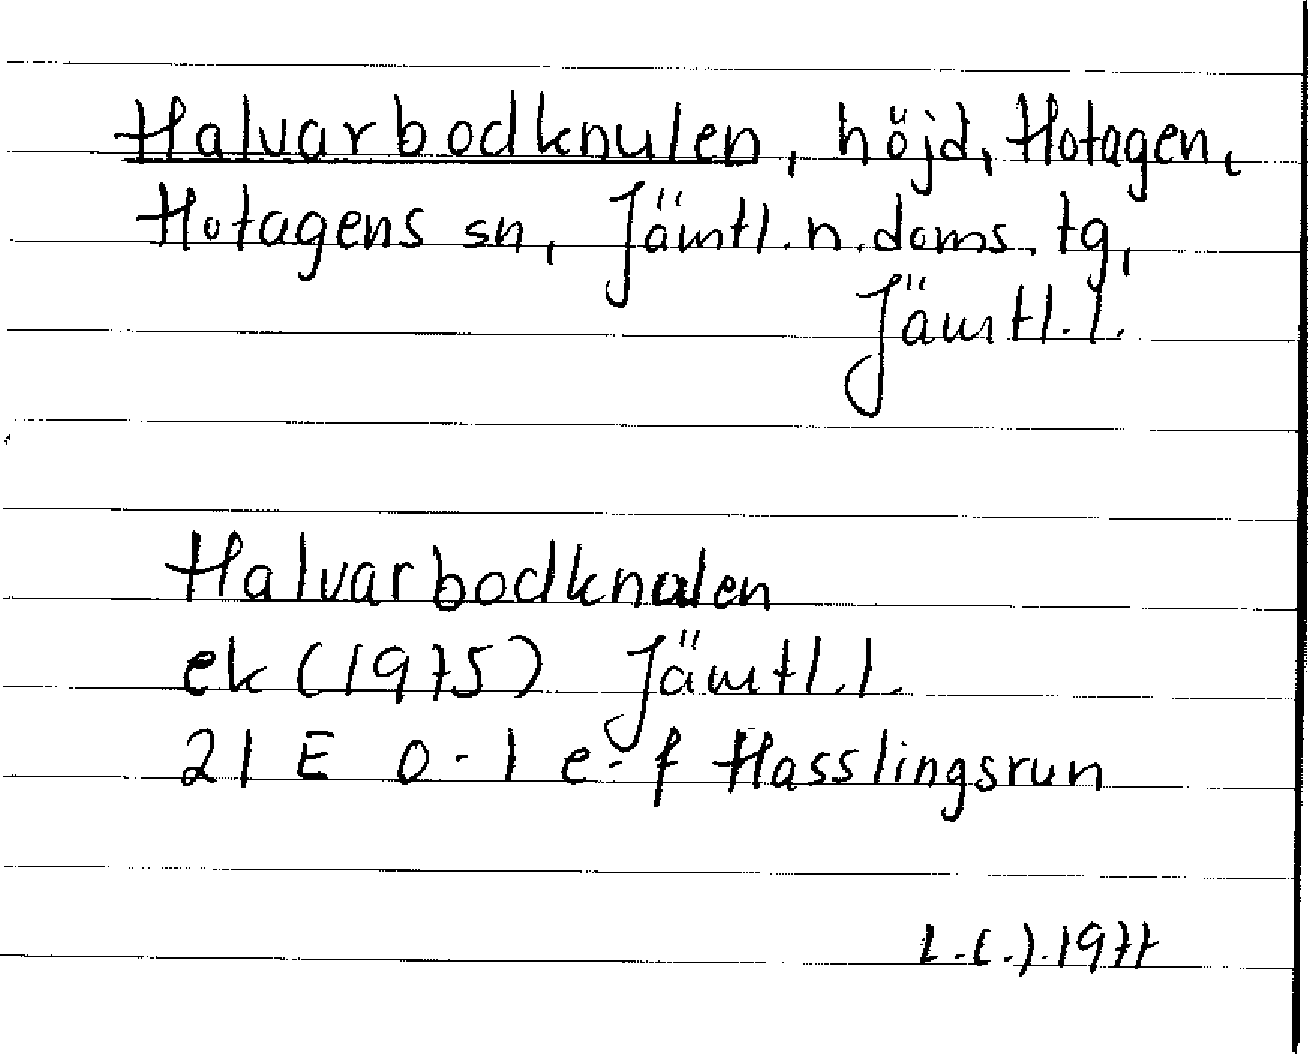 Halvarbodknulen, höjd, Hotagen,
Hotagens sn, Jämtl.n.doms.tg,
Jämtl.l.
Halvarbodknulen
ek (1975) Jämtl.l.
21 E 0-1 e-f Hasslingsrun
L.C.J.1977